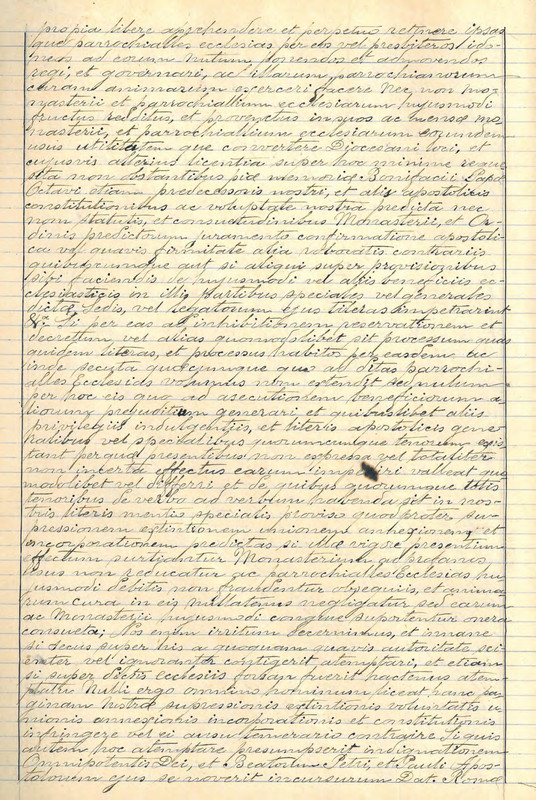 propia libere aprehendere et perpetuo retinere ipsas
que parrochialles ecclesias per eos vel presbiteros ido-
neos ad eorum nutum ponendos et admovendos
regi, et governari, ac illarum parrochianorum
curam animarum exerceri facere nec non mo-
nasterii et parrochiallium ecclesiarum hujusmodi
fructus redditus, et proventus in suos ac mensæ mo-
nasterii, et parrochiallium ecclesiarum eorundem
usus utilitatem que convertere Diocesani loci, et
cujusvis alterius licentia super hoc minime reque-
sita non obstantibus piæ memoriæ Bonifacii Papæ
Octavi etiam predecessoris nostri, et aliis apostolicis
constitutionibus ac voluptate nostra predicta nec
non statutis, et consuetudinibus Monasterii, et Or-
dinis predictorum juramento confirmatione apostoli-
ca vel quavis firmitate alia roboratis contrariis
quibuscumque aut si aliqui super provisionibus
sibi faciendis de hujusmodi vel aliis beneficiis ec-
clesiasticis in illis partibus speciales vel generales
dictæ Sedis, vel legatorum ejus literas impetrarint
&.ª Si per eas ad inhibitionem reservationem et
decretum vel alias quomodolibet sit processum quas
quidem literas, et processus habitos per easdem ac
inde secuta quæcumque que ad ditas parrochi-
alles Ecclesias volumus non extendit sed nulum
per hoc eis quo ad asecutionem beneficiorum a-
liorum prejuditium generari, et quibuslibet aliis
privilegiis indulgentiis, et literis apostolicis gene-
ralibus vel specialibus quorumcumque tenorum exis-
tant per quæ presentibus non expressa vel totaliter
non inserta effectus earum impediri valleat quo
modolibet vel differri et de quibus quorumque totis
tenoribus de verbo ad verbum habenda sit in nos-
tris literis mentis specialis proviso quod propter su-
pressionem extintionem unionem annexionem et
incorporationem predictas si illæ vigore presentium
effectum surtiantur Monasterium ad profanos
usus non reducatur ac parrochialles Ecclesias hu-
jusmodi debitis non fraudentur obsequiis, et anima-
rum cura in eis nullatenus negligatur sed earum
ac Monasterii hujusmodi congrue suportentur onera
consueta; Nos enim irritum decernimus, et innane
si secus super his a quoquam quavis autoritate sci-
enter vel ignoranter contigerit atemptari, et etiam
si super dictis ecclesiis forsan fuerit hactenus atem-
ptatu Nulli ergo omnino hominum liceat hanc pa-
ginam nostræ supressionis extintionis voluntatis u-
nionis annexionis incorporationis et constitutionis
infringere vel ei ausu temerario contraire Si quis
autem hoc atemptare presumpserit indignationem
Omnipotentis Dei, et Beatorum Petri, et Pauli Apos-
tolorum ejus se noverit incursurum Dat. Romæ